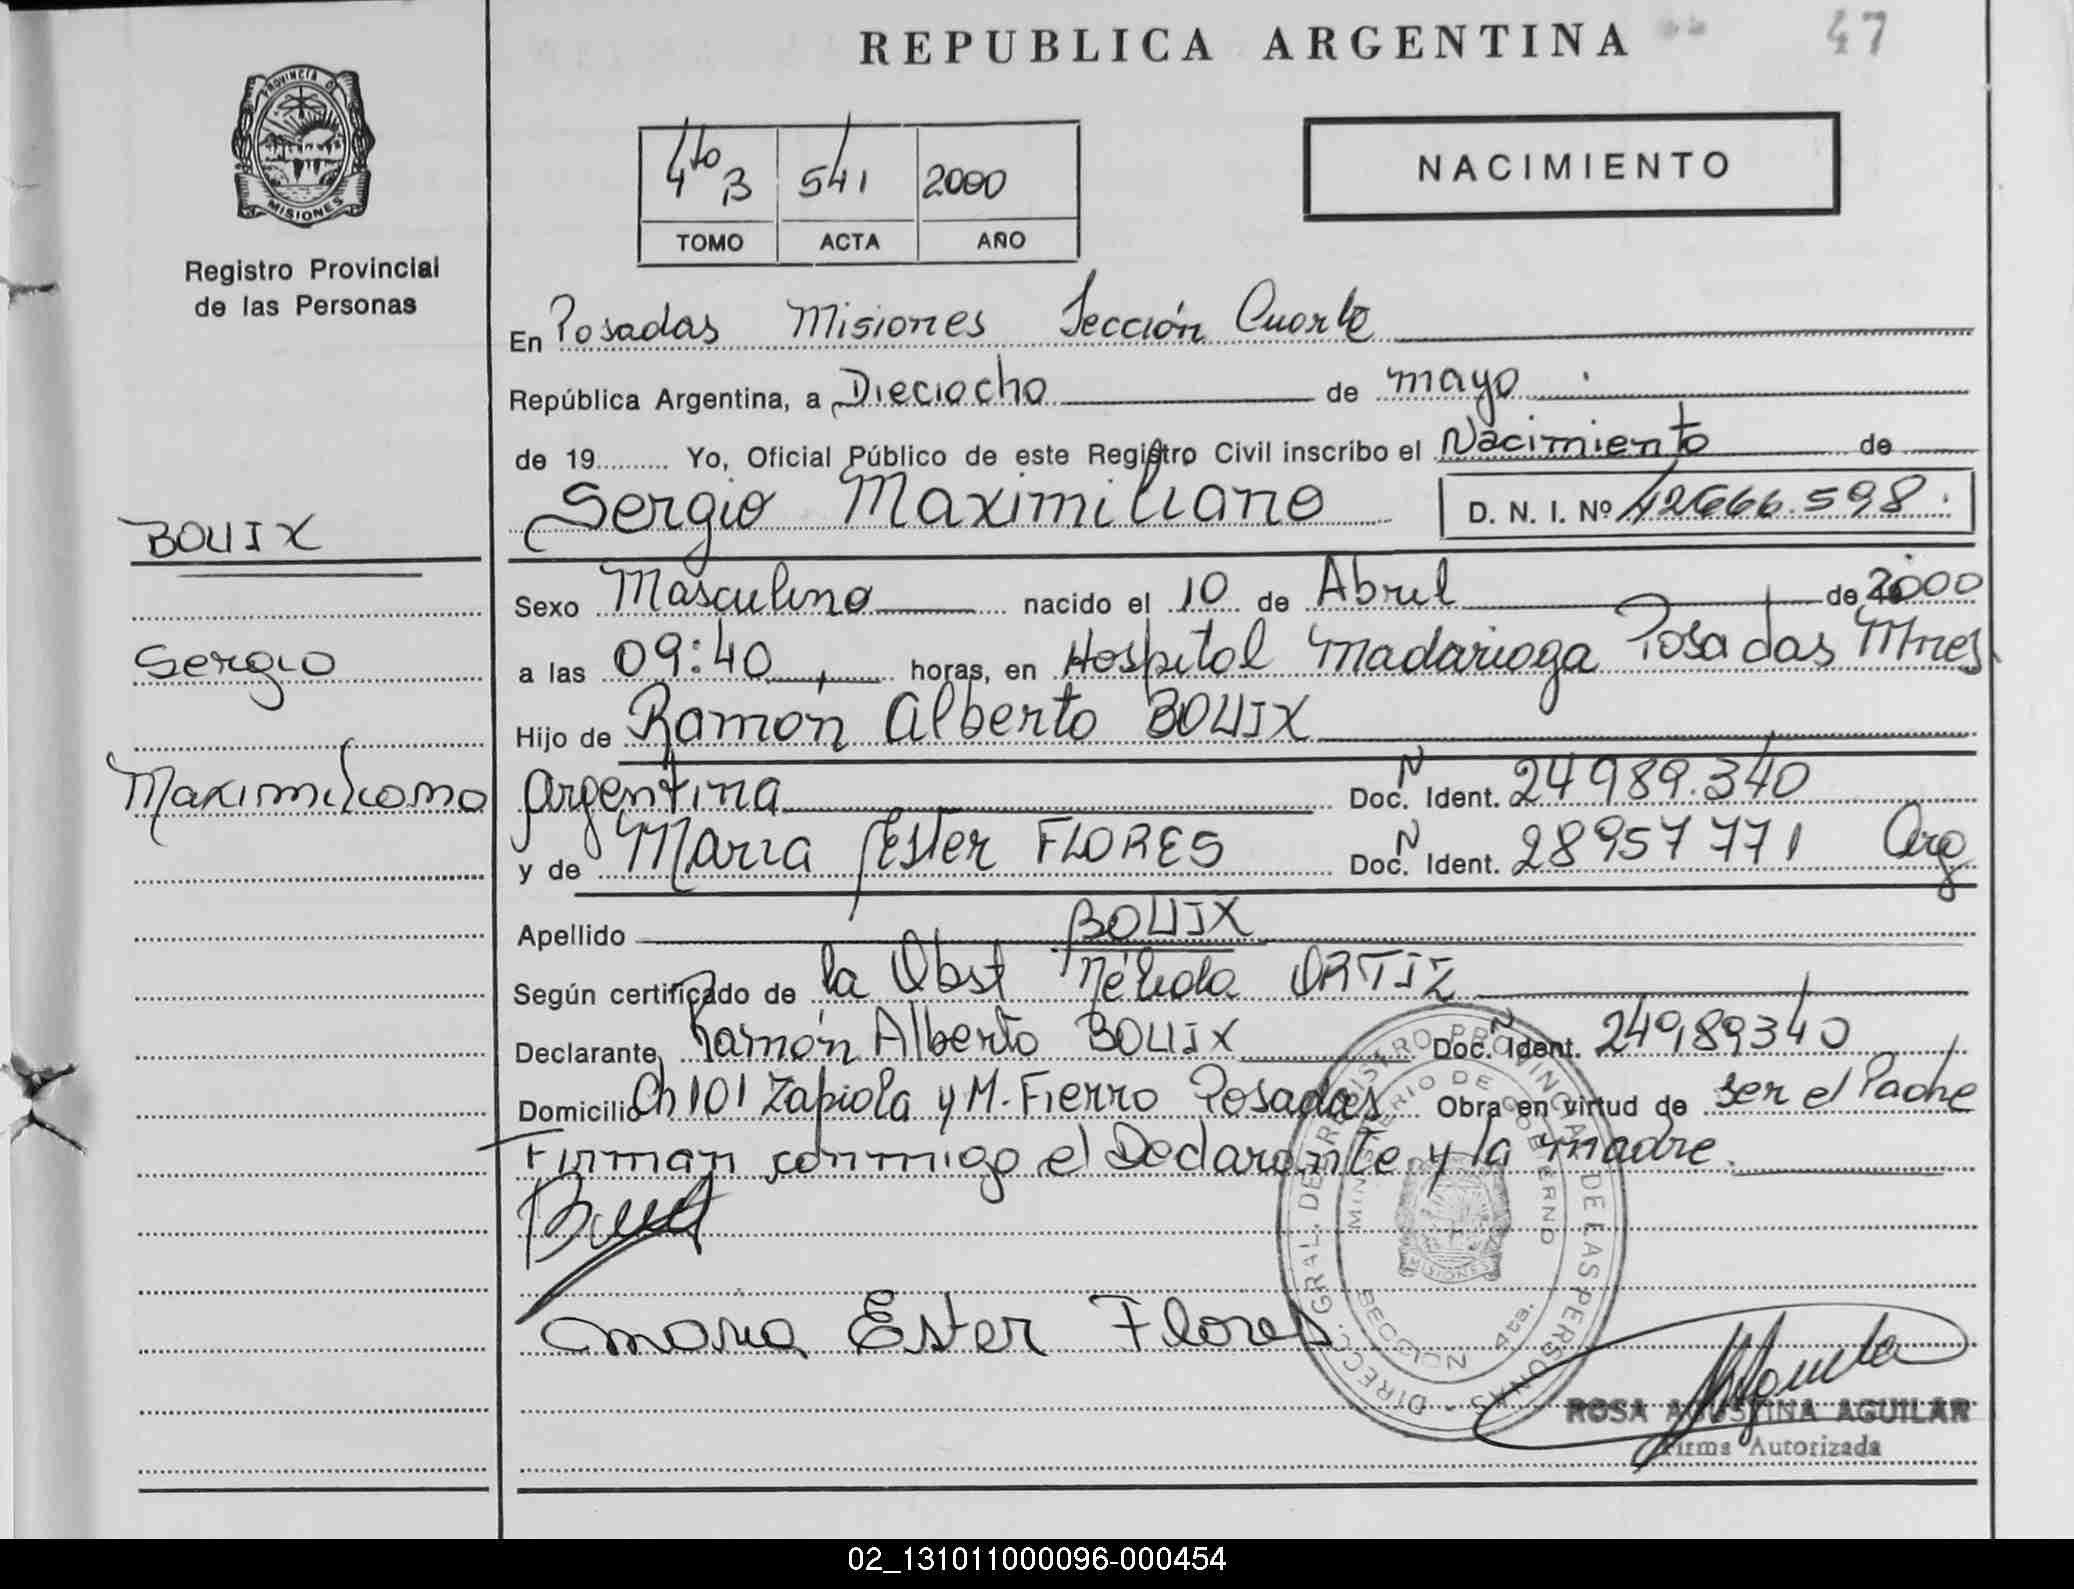 REPUBLICA ARGENTINA
47
PROVINCIA DE
MISIONES
Registro Provincial
de las Personas
4to B 541 2000
TOMO ACTA AÑO
NACIMIENTO
En Posadas Misiones Sección Cuarta
República Argentina, a Dieciocho de mayo
de 19.......... Yo, Oficial Público de este Registro Civil inscribo el Nacimiento de
Sergio Maximiliano D. N. I. Nº 42666.598.
BOUIX
Sexo Masculino nacido el 10 de Abril de 2000
Sergio
a las 09:40 horas, en Hospital Madariaga Posadas Mnes
Hijo de Ramón Alberto BOUIX
Maximiliano
argentina Doc. N Ident. 24989.340
y de María Ester FLORES Doc. N Ident. 28957771 Arg
Apellido BOUIX
Según certificado de la Obst Nélida ORTIZ
Declarante Ramón Alberto BOUIX Doc. N Ident. 24989340
Domicilio Ch 101 Zapiola y M. Fierro Posadas Obra en virtud de ser el Padre
Firman conmigo el Declarante y la madre.
Maria Ester Flores
DIRECC. GRAL. DE REGISTRO PROVINCIAL DE LAS PERSONAS
MINISTERIO DE GOBIERNO
MISIONES
SECCION 4ta.
ROSA AGUSTINA AGUILAR
Firma Autorizada
02_131011000096-000454